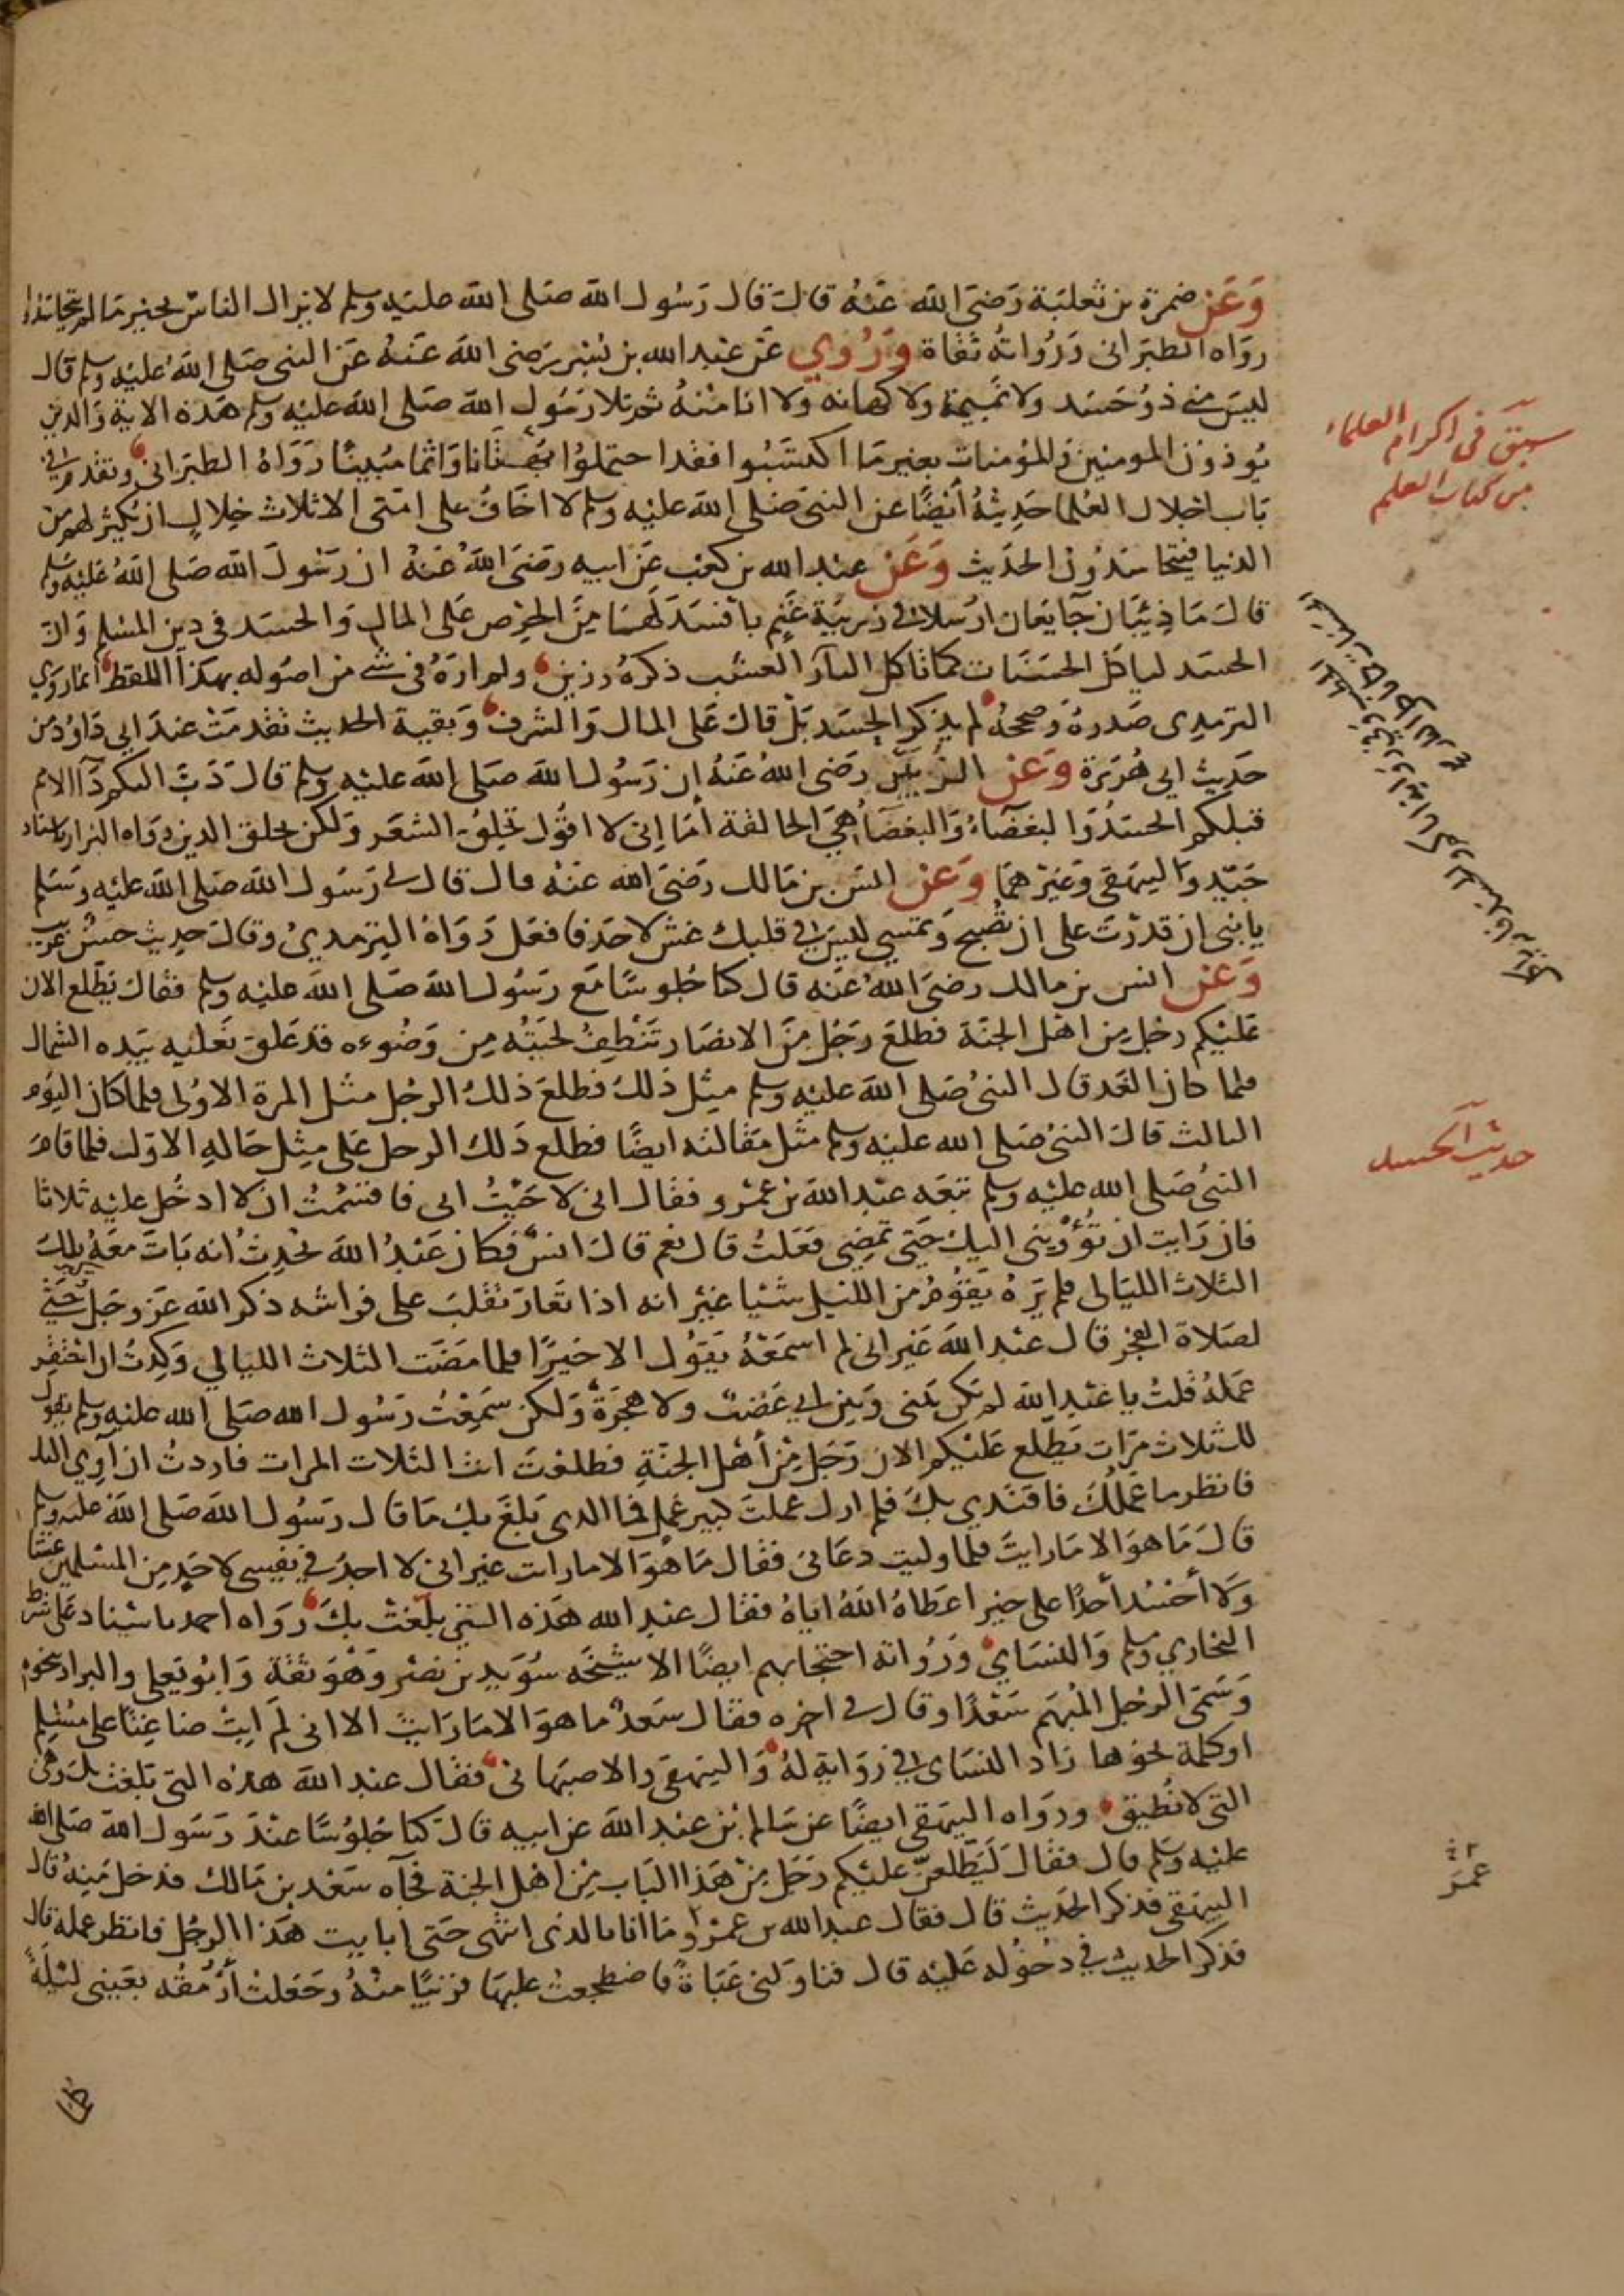 وَعَن ضمرة بن ثعلبة رَضيَ الله عَنهُ قالَ قال رَسُول الله صَلى الله عليه وسلم لا يزال الناس بخير مَا لم يتحاسَدُوا
روَاه الطبَرانى وَرُواتهُ ثقاة وَرُوي عَن عَبد الله بن بُسْر رَضى الله عَنهُ عَن النبى صَلى اللهُ عليه وسلم قال
ليسَ مني ذوُ حَسَد ولا نَميمَة ولا كهانه ولا انا منْهُ ثم تلا رَسُول الله صَلى الله عليه وسلم هَذه الاية وَالذين
يُوذوُن المومنين وَالمؤمنات بغير مَا اكتسَبُوا فقد احتملوُا بهتَانا وَاثما مُبينًا رَوَاهُ الطبَرانى وتقدم في
بَاب اجْلال العُلما حَديثهُ أيضًا عن النبى صَلى الله عليه وسلم لا اخَافُ على امّتى الا ثلاث خِلالٍ ان يكثر لهم من
الدنيا فيتحاسَدُون الحَديث وَعَن عبد الله بن كعب عَن ابيه رضىَ اللهُ عَنهُ ان رَسُولَ الله صَلى اللهُ عَليْه وسلم
قالَ مَا ذِئبَان جَايعَان ارْسلا في زريبَة غَنم بافسَدَ لهَا مِنَ الحِرْص عَلى المال وَالحسَد فى دين المسْلم وَان
الحسَد لياكل الحسَنَات كما تاكل النار العشب ذكرهُ رزين ولم ارَهُ فى شئ من اصُوله بهَكذا اللفظ انما رَوي
الترمِدى صَدرهُ وَصححهُ لم يذكر الحسَد بَلْ قالَ عَلى المال وَالشرف وَبقية الحديث تقدمَتْ عندَ ابي دَاوُد من
حَديث ابي هُرَيرَة وَعَن الزُبَيْر رضى اللهُ عَنهُ ان رَسُول الله صَلى الله عليه وسلم قال دَبَّ اليكم دَآ الامم
قبلكم الحسَدُ وَالبغضَاءُ وَالبغضَاُ هيَ الحالقة أمَا اِنى لا اقوُل تحلِقُ الشعَر وَلكن تحلق الدين رَوَاه البزار باسناد
جَيّد وَالبيهَقى وَغيْرهمَا وَعَن انس بن مَالك رَضىَ الله عَنهُ قال قال لى رَسُول الله صَلى الله عليه وَسَلم
يا بنى ان قدرْتَ على ان تصْبح وَتمسي ليسَ في قلبك غش لاحَد فافعَل رَوَاهُ الترْمدىُ وقالَ حديث حسَن غريب
وَعَن انس بن مالك رضىَ اللهُ عَنه قال كنا جُلوسًا مَع رَسُول الله صَلى الله عليه وسلم فقالَ يَطّلع الان
عَليْكم رجُل مِن اهْل الجنَة فطلعَ رَجُل مِنَ الانصَار تَنْطِفُ لحيَتُه مِن وَضُوءِه قد عَلق نَعليه بيَده الشمال
فلما كان الغَد قال النبىُ صَلى الله عليْه وسلم مِثل ذلكَ فطلعَ ذلكَ الرجُل مثل المرة الاوُلى فلما كان اليَوْم
الثالث قالَ النبىُ صَلى الله عليْه وسلم مثل مَقالته ايضًا فطلع ذَلك الرجل عَلى مِثل حَالهِ الاوّل فلما قامَ
النبىُ صَلى الله عليْه وسلم تبَعَه عَبْد الله بن عَمْرو فقال انى لاحَيْتُ ابى فاقسَمْتُ ان لا ادخُل عليْه ثلاثا
فان رَايت ان تُؤْوِيَنى اليك حَتى تمضِى فعَلتَ قال نعم قالَ انسٌ فكان عَبْدُ الله يُحَدث انه بَاتَ مَعَهُ تلكَ
الثلاث الليَالى فلم يَرَهُ يَقوُمُ من الليْل شيْئا غيْر انه اذا تَعَارَ تقلبَ على فراشه ذكر الله عَز وجَل حَتى
لصَلاة الفجْر قال عَبْد الله غَير انى لم اسْمَعْهُ يَقوُل الا خيرًا فلما مَضَت الثلاث الليالي وَكِدْتُ ان احْتَقِر
عمَلهُ قلتُ يا عَبْد الله لم يكن بَينى وَبين ابي غَضَبٌ ولا هجْرَةٌ وَلكن سَمِعْتُ رَسُول الله صَلى الله عليه وسلم يقول
لك ثلاث مرَات يَطّلع عَليْكم الان رَجُل مِّنْ أهْل الجنَةِ فطلعْتَ انت الثلاث المرات فاردتُ ان آوي اليك
فانظر ما عَمَلكَ فاقتدي بكَ فلم ارك عملتَ كبير عمل فما الذى بَلغَ بكَ مَا قال رَسُول الله صَلى الله عليه وسلم
قالَ مَا هوَ الا مَا رَايتَ فلما وليت دعَانى فقال مَا هوَ الا ما رايت غير انى لا اجدُ في نفسى لاحَدٍ مِنَ المسْلمين غشا
وَلا أحْسُد أحَدًا على خير اعطاهُ اللهُ اياهُ فقال عبد الله هَذه التى بَلغتْ بكَ رَوَاه احمد باسْناد عَلى شرط
البخاري ومسلم وَالنسَاي وَرُواته احتجّا بهم ايضًا الا شيْخَه سُوَيد بن نصْر وَهْوَ ثقة وَابوُ يَعلى والبزار بنحوه
وَسَمّى الرجل المُبهَم سَعْدًا وقال في اخره فقال سَعدٌ ما هوَ الا مَا رَايتَ الا انى لم أبِتْ ضاغِنًا على مُسْلم
اوكلمة نحوها زاد النسَاى في رِوَاية لهُ وَالبيهَقى والاصبَهانى فقال عبد الله هذه التى بَلغت بك وَهى
التى لا نُطيق ورَوَاه البيهَقى ايضًا عن سَالم بْن عَبد الله عن ابيه قال كنا جُلوُسًا عنْدَ رَسُول الله صَلى الله
عليه وسَلم قال فقالَ لَيَطّلعنّ عليْكم رَجُل مِنْ هَذا البَاب مِن اهْل الجنة فجآه سَعْد بن مَالك فدخل مِنهُ قال
البيهَقى فذكر الحَديث قال فقال عبد الله بن عمرو مَا انا بالذى انتهى حَتى ابايت هَذا الرجُل فانظر عمله قال
فذكر الحديث في دخوُله عَليْه قال فناوَلنى عَبَاةً فاضطجعتُ عليهَا قريبًا منْهُ وجَعَلت أرْمُقه بعَينى ليْلَهُ
سبق فى اكرام العلماء
من كتاب العلم
حديث الحسد
عمر